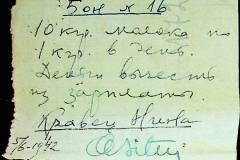 Бон № 16
10 кгр. молока по
1 кгр. в день.
Деньги вычесть
из зарплаты.
Кравец Нина
5/6-1942